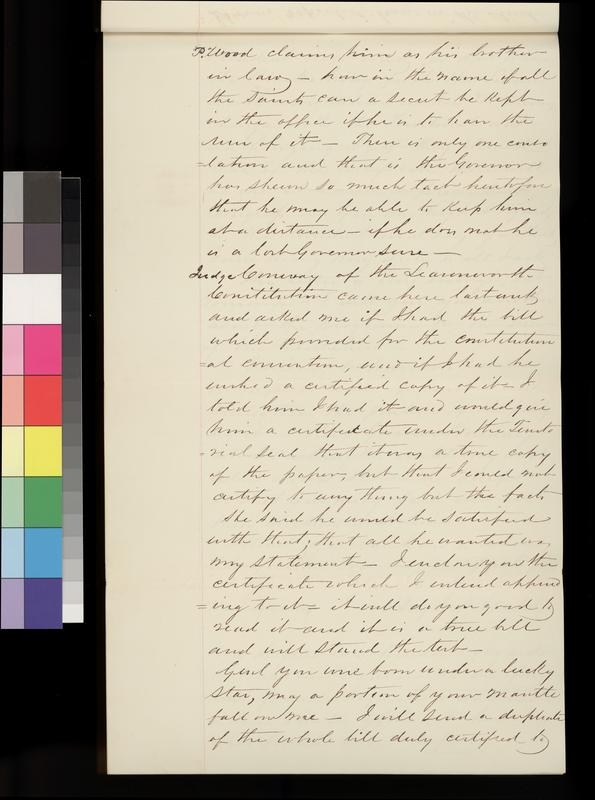 P. Wood claims him as his brother
in law, – how in the name of all
the Saints can a secret be kept
in the office if he is to learn the
run of it – There is only one conso
=lation and that is the Governor
has shewn so much tact heretofore
that he may be able to keep him
at a distance – if he does not he
is a lost Governor sure –
Judge Conway of the Leavenworth
Constitution came here last week
and asked me if I had the bill
which provided for the constitution
=al convention, and if I had he
wished a certified copy of it – I
told him I had it and would give
him a certificate under the Territo
=rial seal that it was a true copy
of the paper, but that I could not
certify to any thing but the facts
She said he would be satisfied
with that, that all he wanted was
my statement – I enclose you the
certificate which I intend append
=ing to it = it will do you good to
read it and it is a true bill
and will stand the test –
Genl you were born under a lucky
star, may a portion of your mantle
fall on me – I will send a duplicate
of the whole bill duly certified to